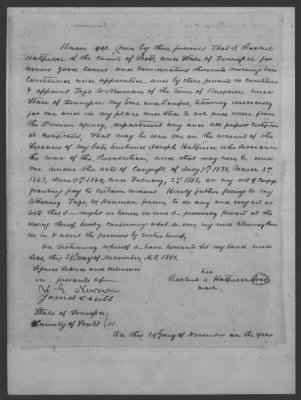 Know all Men by these presents That I Rachel
Hatfield of the County of Scott and State of Tennessee for
divers good causes and considerations thereunto moving have
constituted and appointed, and by these presents do constitute
& appoint Tage W Newman of the town of
State of Tennessee my true and Lawful Attorney irrevocably
for me and in my place and stead to ask and receive from
The Pension Agency, department any and all
or certificates, That may be due me on the account of the
services of my late husband Joseph Hatfield, who served in
the war of the Revolution, and that may now be due
me under the acts of Congress of July 7th 1838, March 3rd
1843, June 17th 1844 and February 2d 1848, or any act of Congress
granting pay to certain widows hereby further giving to my
Attorney Tage W Newman power to do any and every act or
acts that I might or could do were I personally present at the
doing thereof, hereby confirming what ever my said Attorney may
do in & about the premises by virtue hereof,
In testimony whereof I have hereunto set my hand and
Seal, this 24th day of November A.D. 1851.
Signed Sealed and delivered
in presents of
her
Rachel x Hatfield
mark
Newman
James
State of Tennessee
County of Scott } SS
On this 24th day of November in the year